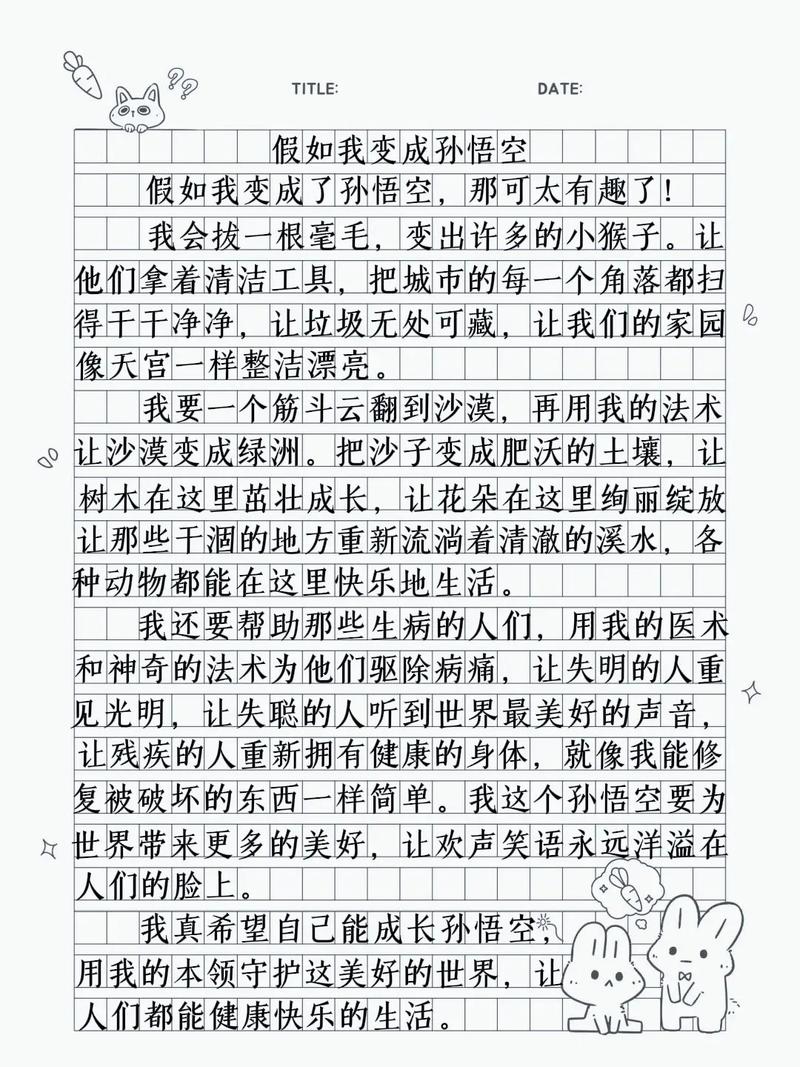 TITLE: DATE:
假如我变成孙悟空
假如我变成了孙悟空，那可太有趣了！
我会拔一根毫毛，变出许多的小猴子。让
他们拿着清洁工具，把城市的每一个角落都扫
得干干净净，让垃圾无处可藏，让我们的家园
像天宫一样整洁漂亮。
我要一个筋斗云翻到沙漠，再用我的法术
让沙漠变成绿洲。把沙子变成肥沃的土壤，让
树木在这里茁壮成长，让花朵在这里绚丽绽放
让那些干涸的地方重新流淌着清澈的溪水，各
种动物都能在这里快乐地生活。
我还要帮助那些生病的人们，用我的医术
和神奇的法术为他们驱除病痛，让失明的人重
见光明，让失聪的人听到世界最美好的声音，
让残疾的人重新拥有健康的身体，就像我能修
复被破坏的东西一样简单。我这个孙悟空要为
世界带来更多的美好，让欢声笑语永远洋溢在
人们的脸上。
我真希望自己能成长孙悟空，
用我的本领守护这美好的世界，让
人们都能健康快乐的生活。